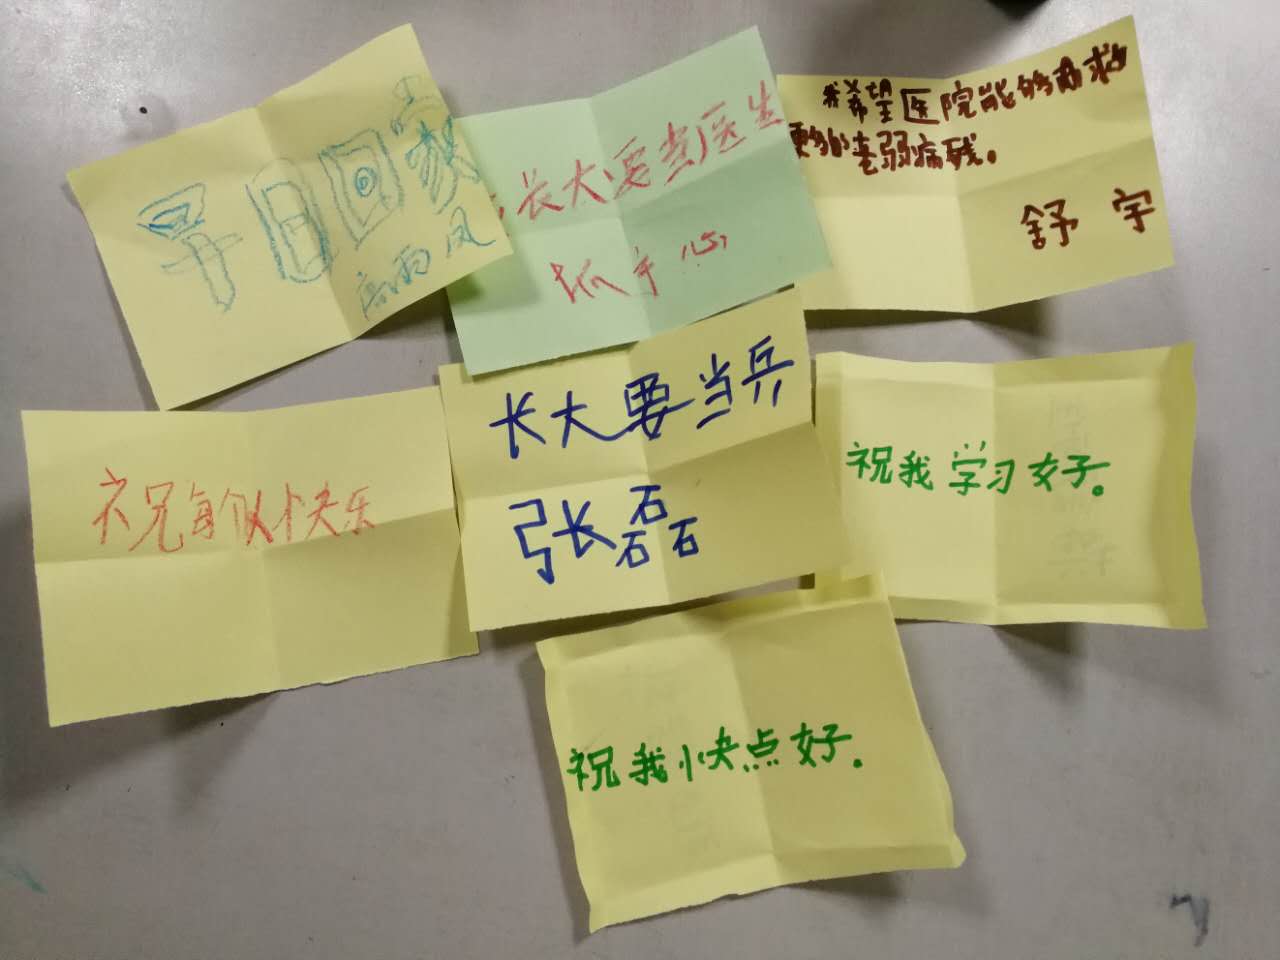 早日回家
高雨凤
长大要当医生
我希望医院能够
救
更多的老弱病残。
舒宇
祝每
快乐
长大要当兵
张磊
祝我学习好。
祝我快点好。